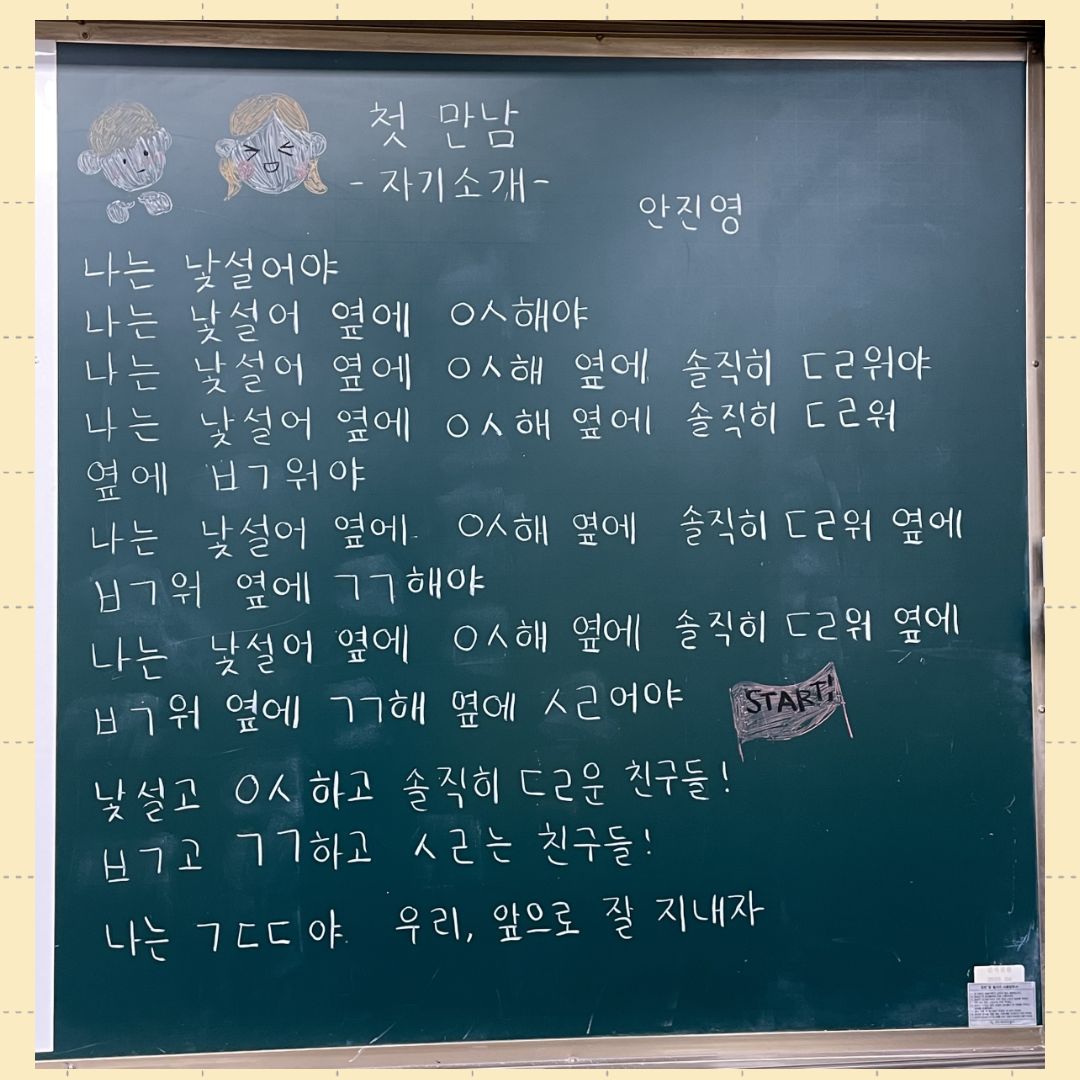 첫 만남
- 자기소개 -
안진영
나는 낯설어야
나는 낯설어 옆에 ㅇㅅ해야
나는 낯설어 옆에 ㅇㅅ해 옆에 솔직히 ㄷㄹ워야
나는 낯설어 옆에 ㅇㅅ해 옆에 솔직히 ㄷㄹ워
옆에 ㅂㄱ워야
나는 낯설어 옆에 ㅇㅅ해 옆에 솔직히 ㄷㄹ워 옆에
ㅂㄱ워 옆에 ㄱㄱ해야
나는 낯설어 옆에 ㅇㅅ해 옆에 솔직히 ㄷㄹ워 옆에
ㅂㄱ워 옆에 ㄱㄱ해 옆에 ㅅㄹ어야
START!
낯설고 ㅇㅅ하고 솔직히 ㄷㄹ운 친구들!
ㅂㄱ고 ㄱㄱ하고 ㅅㄹ는 친구들!
나는 ㄱㄷㄷ야 우리, 앞으로 잘 지내자